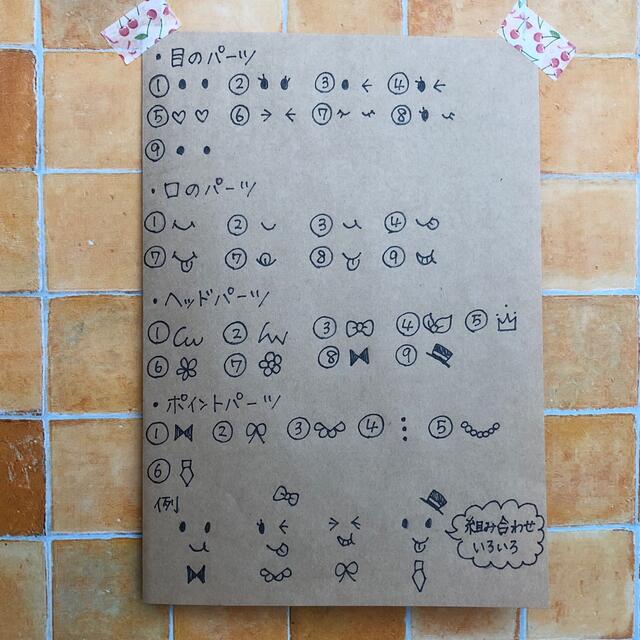 ・目のパーツ
① ② ③ ④
⑤ ⑥ ⑦ ⑧
⑨
・口のパーツ
① ② ③ ④
⑦ ⑦ ⑧ ⑨
・ヘッドパーツ
① ② ③ ④ ⑤
⑥ ⑦ ⑧ ⑨
・ポイントパーツ
① ② ③ ④ ⑤
⑥
例
組み合わせ
いろいろ